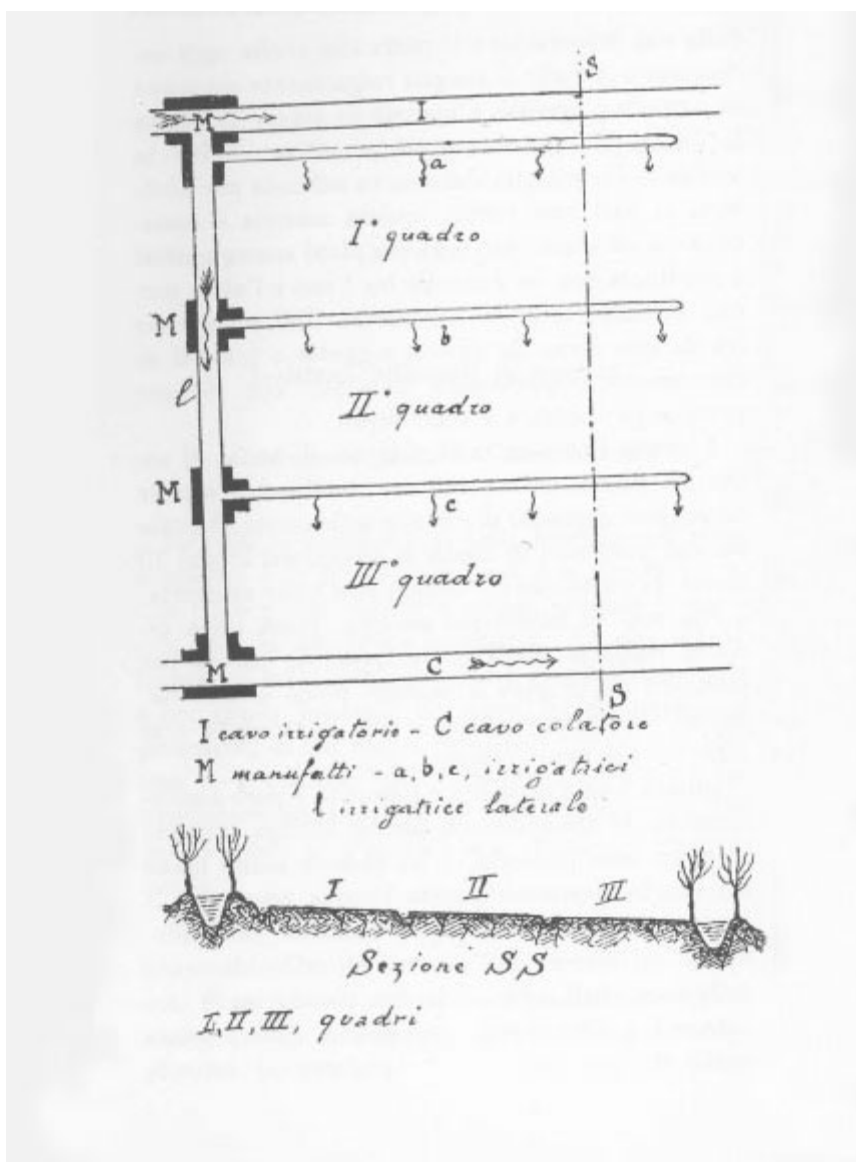 S
M I
a
I° quadro
M
b
l
II° quadro
M
c
III° quadro
M C
S
I cavo irrigatorio - C cavo colatore
M manufatti - a, b, c, irrigatrici
l irrigatrice laterale
I II III
Sezione S,S
I, II, III, quadri